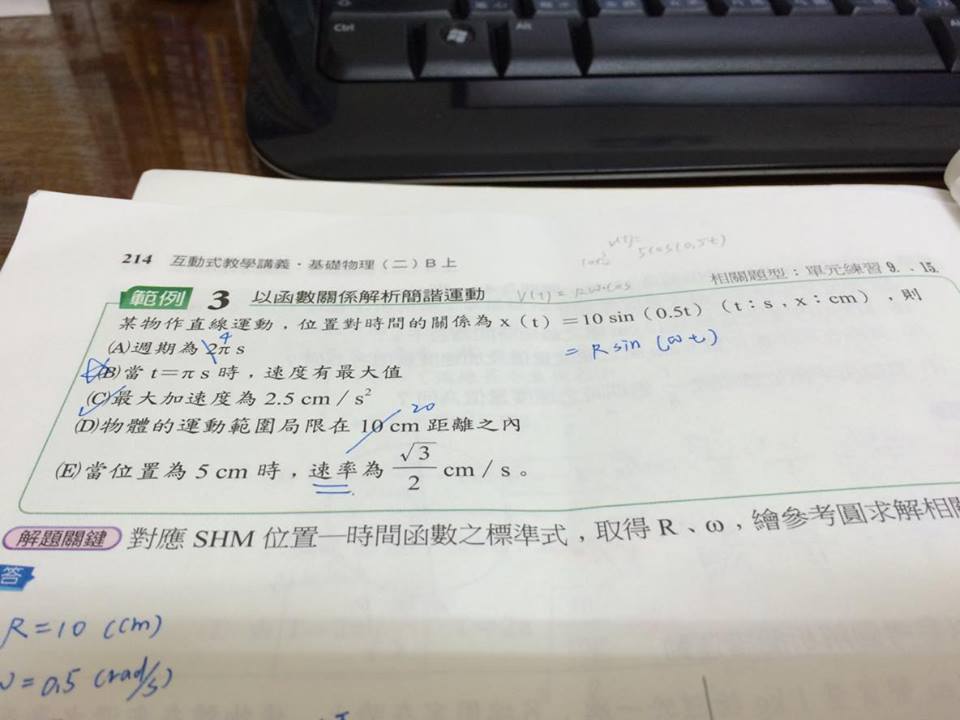 Ctrl
Alt
214 互動式教學講義·基礎物理(二)B上
V(t)=
5cos(0.5t)
相關題型:單元練習9.、15.
範例 3 以函數關係解析簡諧運動
V(t)=Rωcos
某物作直線運動,位置對時間的關係為x(t)=10 sin(0.5t)(t:s,x:cm),則
= R sin (ωt)
(A)週期為2π s
4
(B)當t=π s時,速度有最大值
(C)最大加速度為2.5 cm/s²
(D)物體的運動範圍局限在10 cm距離之內
20
(E)當位置為5 cm時,速率為√3/2 cm/s。
解題關鍵 對應SHM位置—時間函數之標準式,取得R、ω,繪參考圓求解相關
答
R=10 (cm)
ω=0.5 (rad/s)